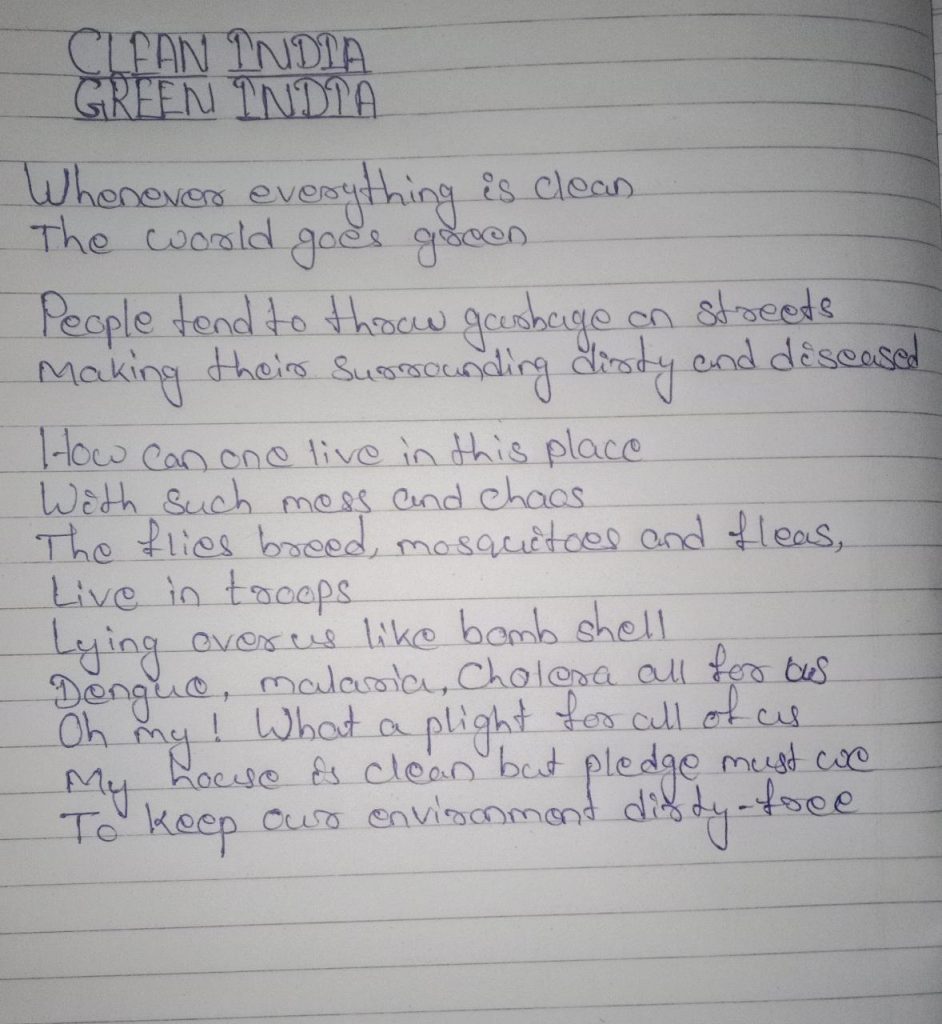 CLEAN INDIA
GREEN INDIA
Whenever everything is clean
The world goes green
People tend to throw garbage on streets
Making their surrounding dirty and diseased
How can one live in this place
With such mess and chaos
The flies breed, mosquitoes and fleas,
Live in troops
Lying over us like bomb shell
Dengue, malaria, Cholera all for us
Oh my! What a plight for all of us
My house is clean but pledge must we
To keep our environment dirty-free